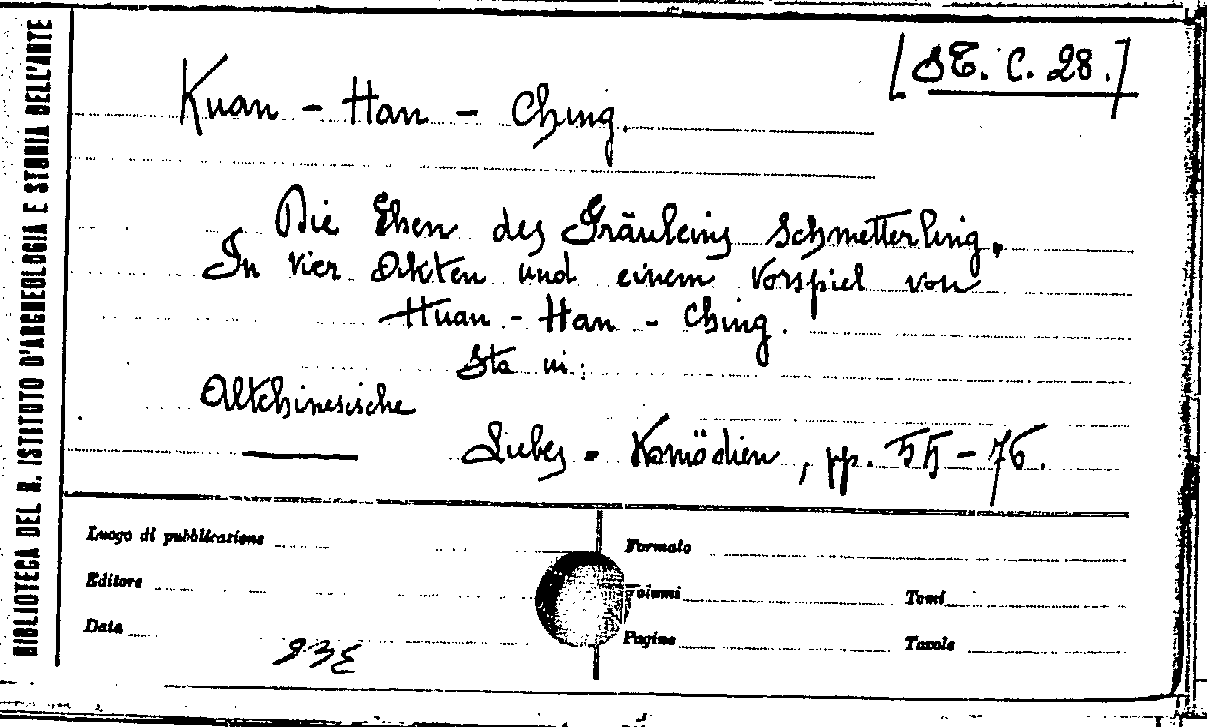 BIBLIOTECA DEL R. ISTITUTO D'ARCHEOLOGIA E STORIA DELL'ARTE
[ST. C. 28.]
Kuan - Han - Ching.
Die Ehen des Fräuleins Schmetterling.
In vier Akten und einem Vorspiel von
Huan - Han - Ching.
Sta in:
Altchinesische
Liebes - Komödien, pp. 55-76.
Luogo di pubblicazione
Formato
Editore
Volumi
Tomi
Data
Pagine
Tavole